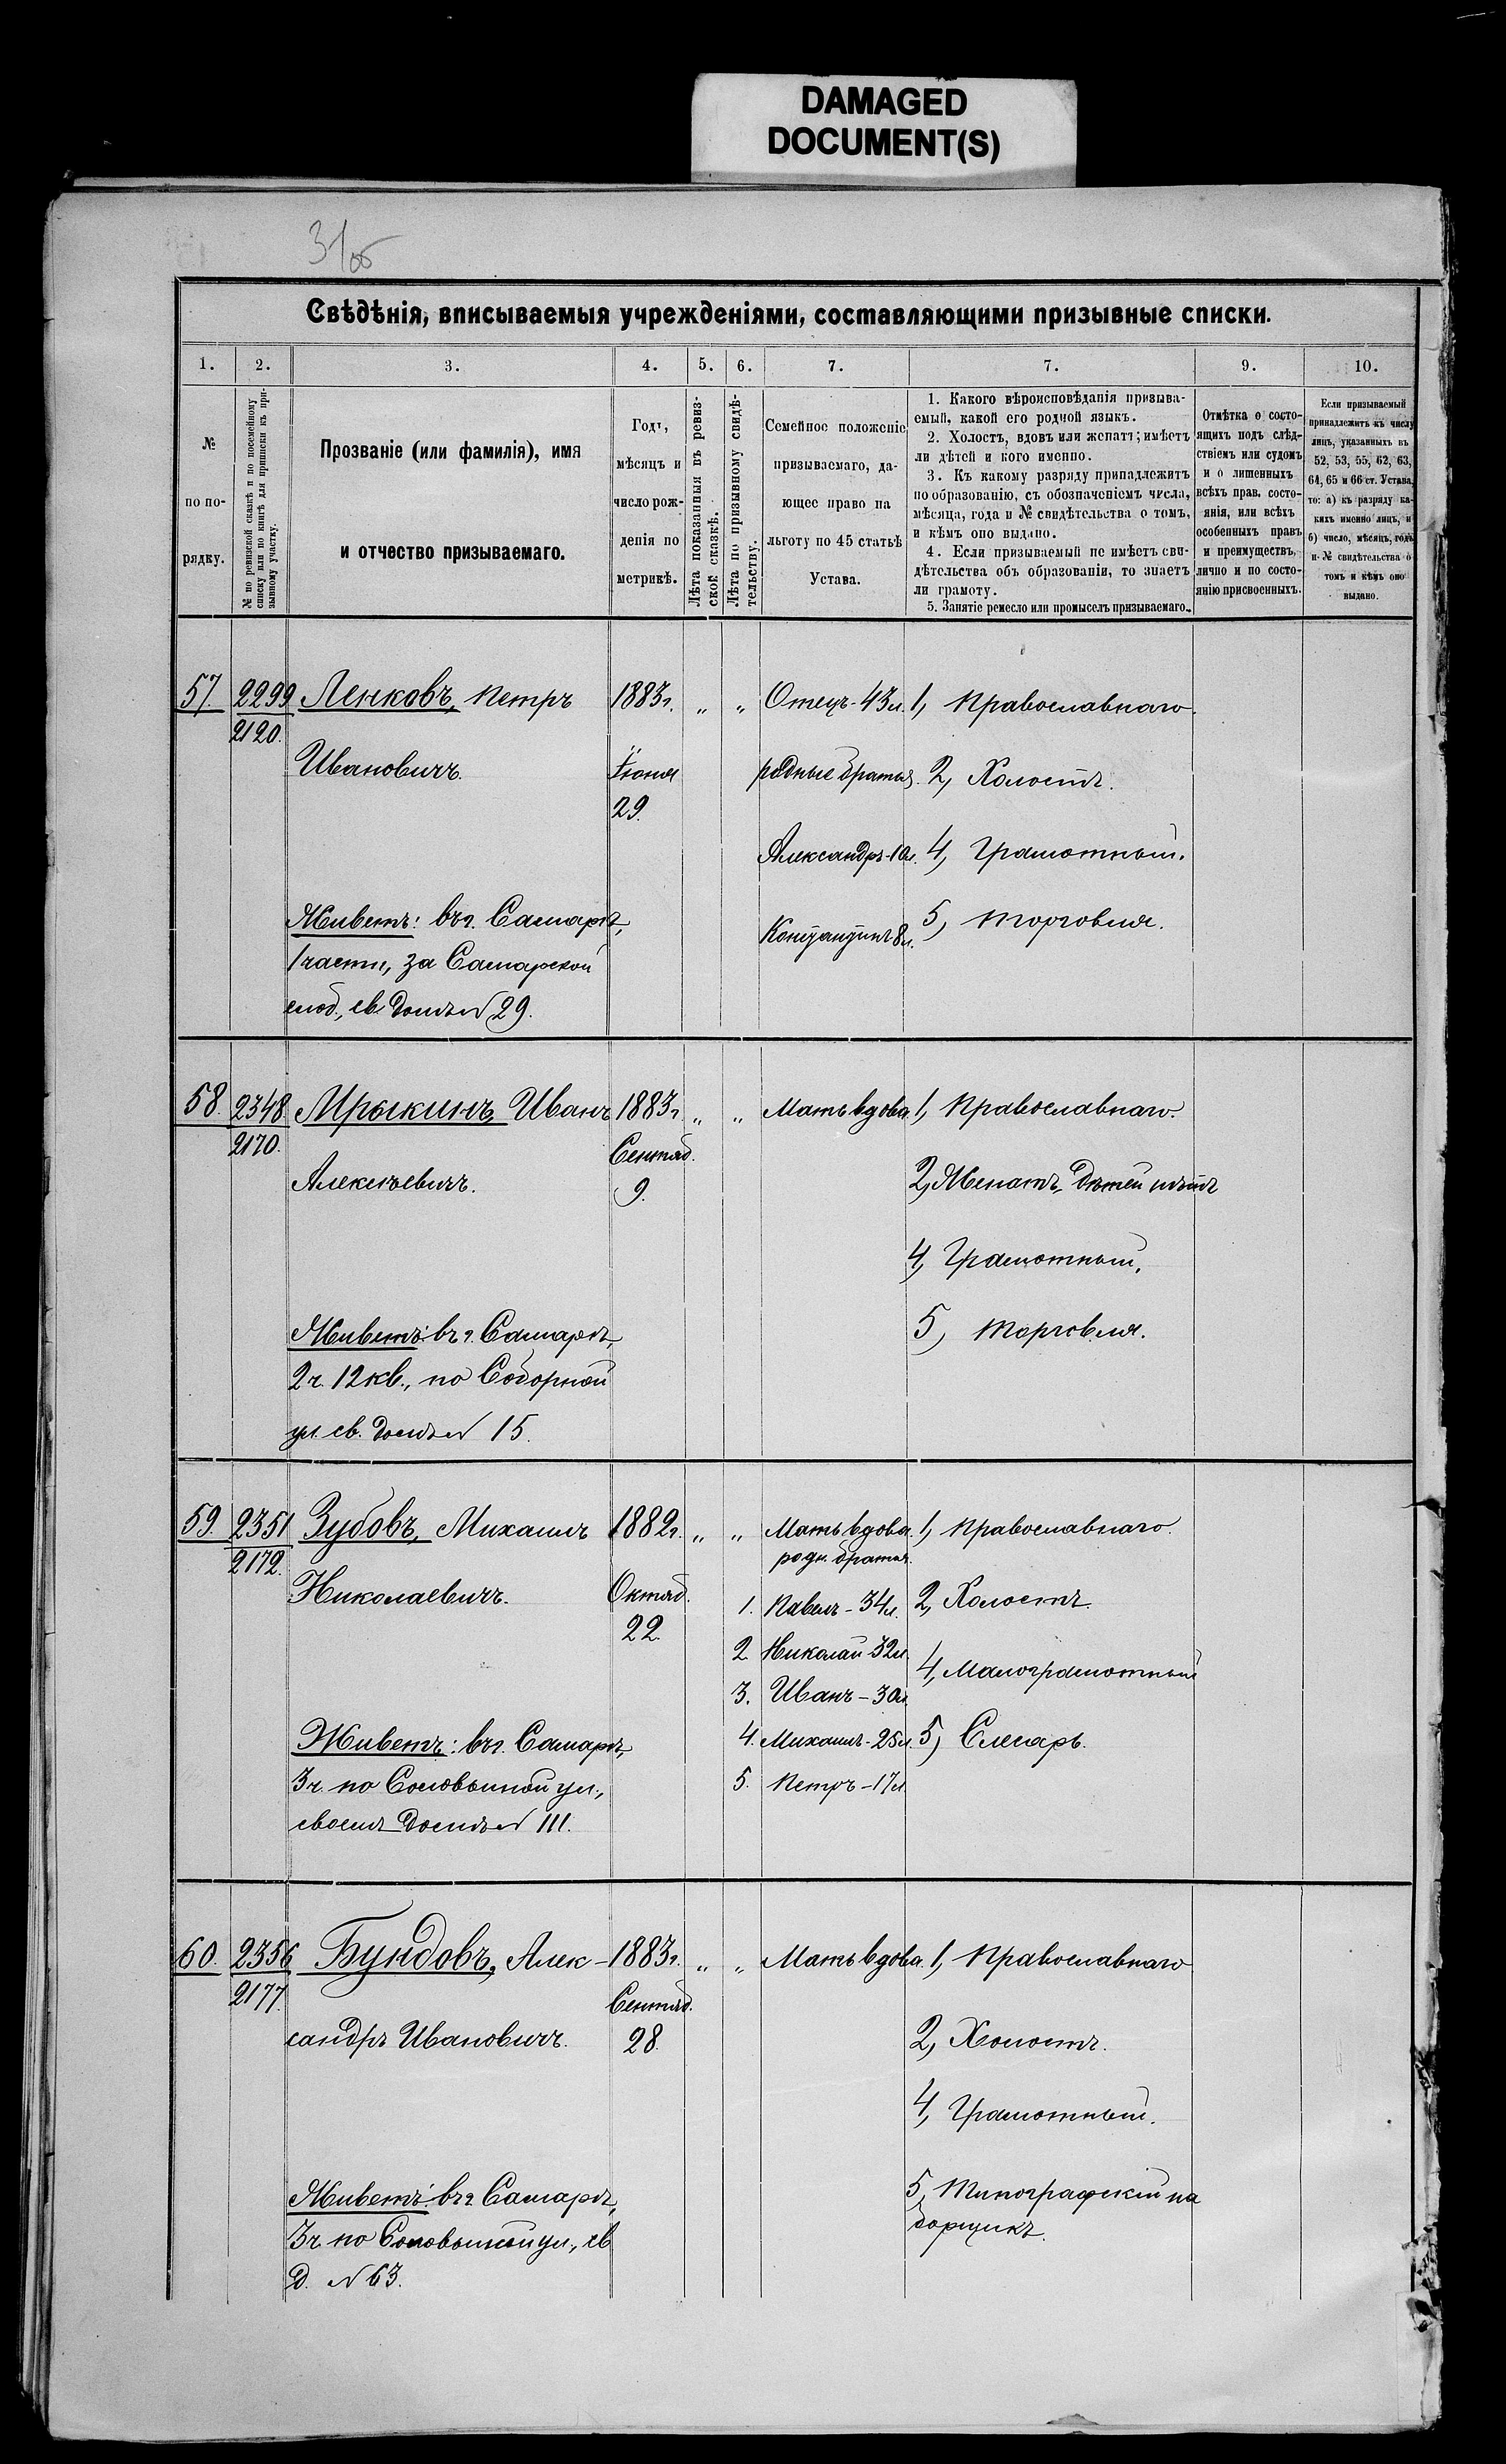 DAMAGED
DOCUMENT(S)
31об
Свѣдѣнія, вписываемыя учрежденіями, составляющими призывные списки.
1. 2. 3. 4. 5. 6. 7. 7. 9. 10.
№
по по-
рядку.
№ по ревизской сказкѣ и по посемейному
списку или по книгѣ для приписки къ при-
зывному участку.
Прозваніе (или фамилія), имя
и отчество призываемаго.
Годъ,
мѣсяцъ и
число рож-
денія по
метрикѣ.
Лѣта показанныя въ ревиз-
ской сказкѣ.
Лѣта по призывному свидѣ-
тельству.
Семейное положеніе
призываемаго, да-
ющее право на
льготу по 45 статьѣ
Устава.
1. Какого вѣроисповѣданія призыва-
емый, какой его родной языкъ.
2. Холостъ, вдовъ или женатъ; имѣетъ
ли дѣтей и кого именно.
3. Къ какому разряду принадлежитъ
по образованію, съ обозначеніемъ числа,
мѣсяца, года и № свидѣтельства о томъ,
и кѣмъ оно выдано.
4. Если призываемый не имѣетъ сви-
дѣтельства объ образованіи, то знаетъ
ли грамоту.
5. Занятіе ремесло или промыселъ призываемаго.
Отмѣтка о состо-
ящихъ подъ слѣд-
ствіемъ или судомъ
и о лишенныхъ
всѣхъ прав. состо-
янія, или всѣхъ
особенныхъ правъ
и преимуществъ,
лично и по состо-
янію присвоенныхъ.
Если призываемый
принадлежитъ къ числу
лицъ, указанныхъ въ
52, 53, 55, 62, 63,
64, 65 и 66 ст. Устава,
то: а) къ разряду ка-
кихъ именно лицъ, и
б) число, мѣсяцъ, годъ
и № свидѣтельства о
томъ и кѣмъ оно
выдано.
57. 2299 Ленковъ, Петръ 1883г. " " Отецъ-43л. 1, Православнаго.
2120.
Ивановичъ. Іюня родные братья. 2, Холостъ.
29.
Александръ-10л. 4, Грамотный.
Живетъ: въ г. Самарѣ, Константинъ 8л. 5, Торговля.
1 части, за Самарской
слоб., св. домъ № 29.
58. 2348. Мрыкинъ, Иванъ 1883г. " " Мать вдова 1, Православнаго.
2170. Сентяб.
Алексѣевичъ. 9. 2, Женатъ, дѣтей нѣтъ
4, Грамотный.
Живетъ: въ г. Самарѣ, 5, Торговля.
2 ч. 12 кв., по Соборной
ул. св. домъ № 15.
59. 2351 Зубовъ, Михаилъ 1882г. " " Мать вдова. 1, Православнаго.
2172. родн. братья.
Николаевичъ. Октяб. 1. Павелъ-34л. 2, Холостъ.
22. 2 Николай-32л.
4, Малограмотный
3. Иванъ-30л.
Живетъ: въ г. Самарѣ, 4. Михаилъ-25л. 5, Слесарь.
3ч. по Соловьиной ул., 5. Петръ-17л.
своемъ домѣ № 111.
60. 2356 Бундовъ, Алек- 1883г. " " Мать вдова. 1, Православнаго
2177. Сентяб.
сандръ Ивановичъ. 28. 2, Холостъ.
4, Грамотный.
Живетъ: въ г. Самарѣ, 5, Типографскій на
3ч. по Соловьиной ул., св борщикъ.
д. № 63.